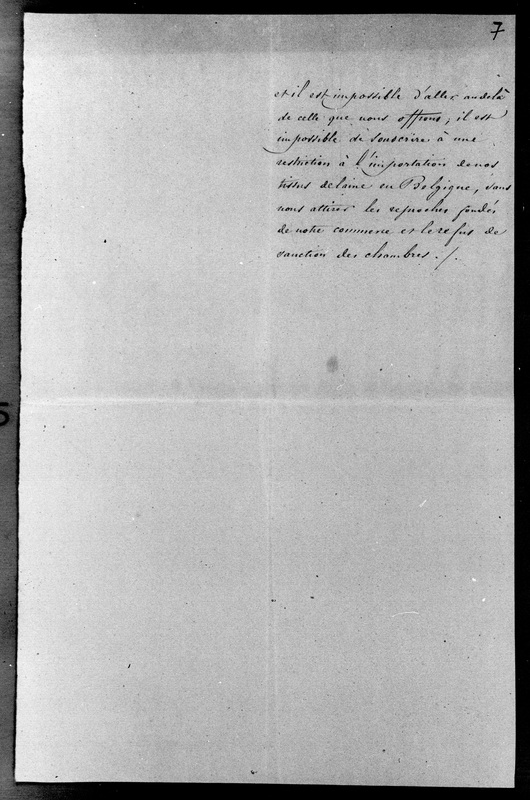 7
et il est impossible d'aller au delà
de celle que nous offrons; il est
impossible de souscrire à une
restriction à l'importation de nos
tissus de laine en Belgique, sans
nous attirer les reproches fondés
de notre commerce et le refus de
sanction des chambres ./.
5